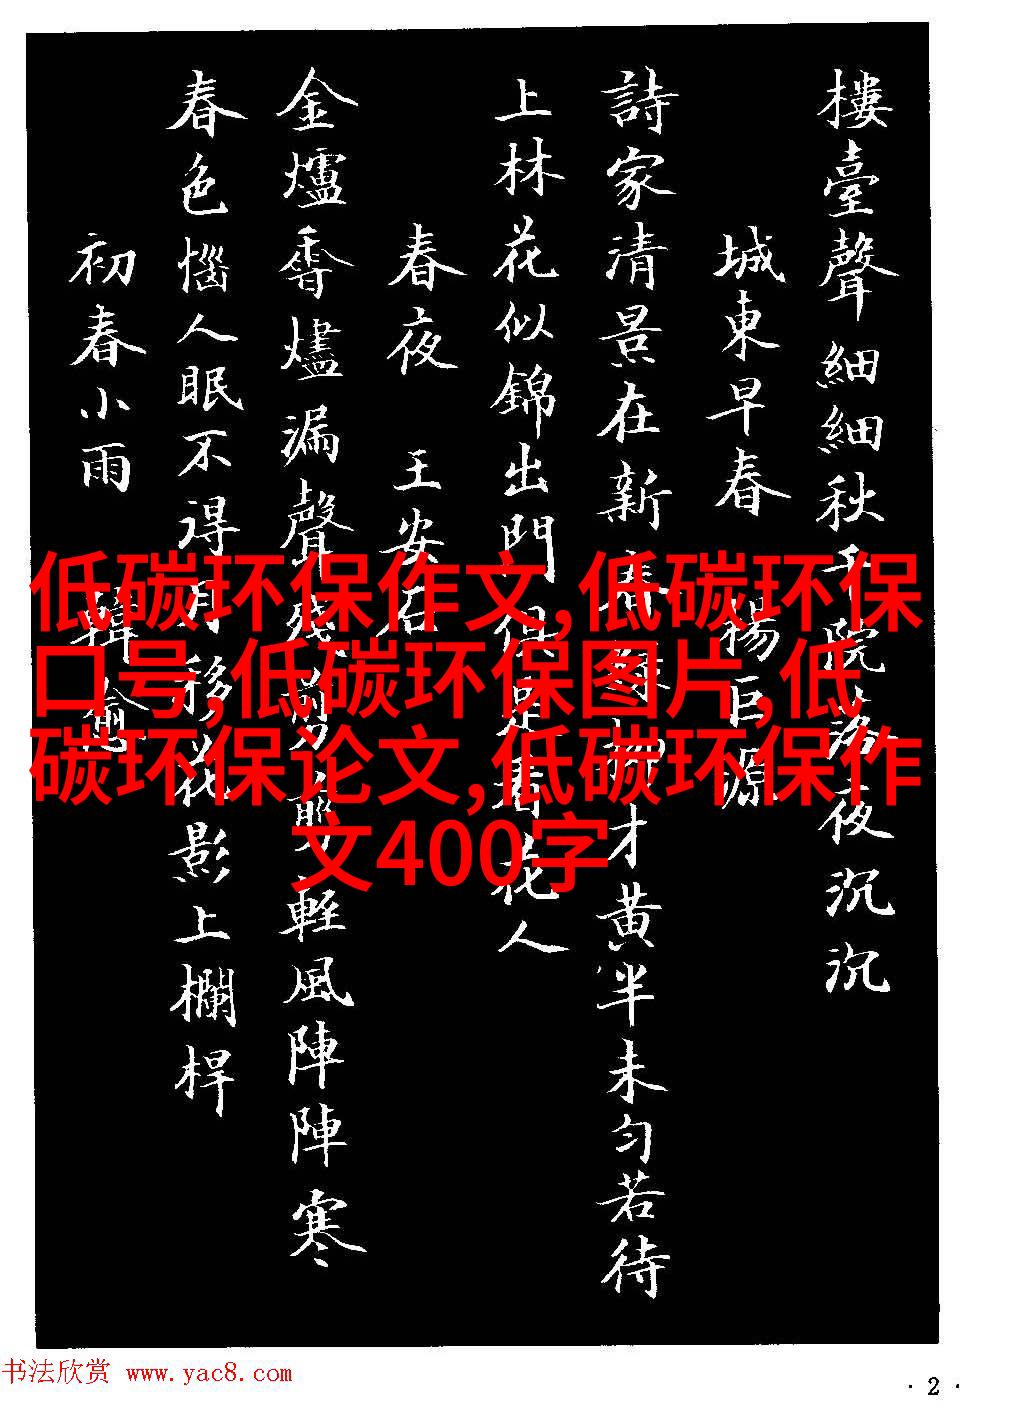 樓臺聲細細秋千院落夜沉沉
城東早春 楊巨源
詩家清景在新春綠柳才黃半未勻若待
上林花似錦出門俱是看花人
春夜 王安石
金爐香燼漏聲殘剪剪輕風陣陣寒
春色惱人眠不得月移花影上欄桿
初春小雨 韓愈
低碳环保作文,低碳环保
口号,低碳环保图片,低
碳环保论文,低碳环保作
文400字
书法欣赏 www.yac8.com
·2·